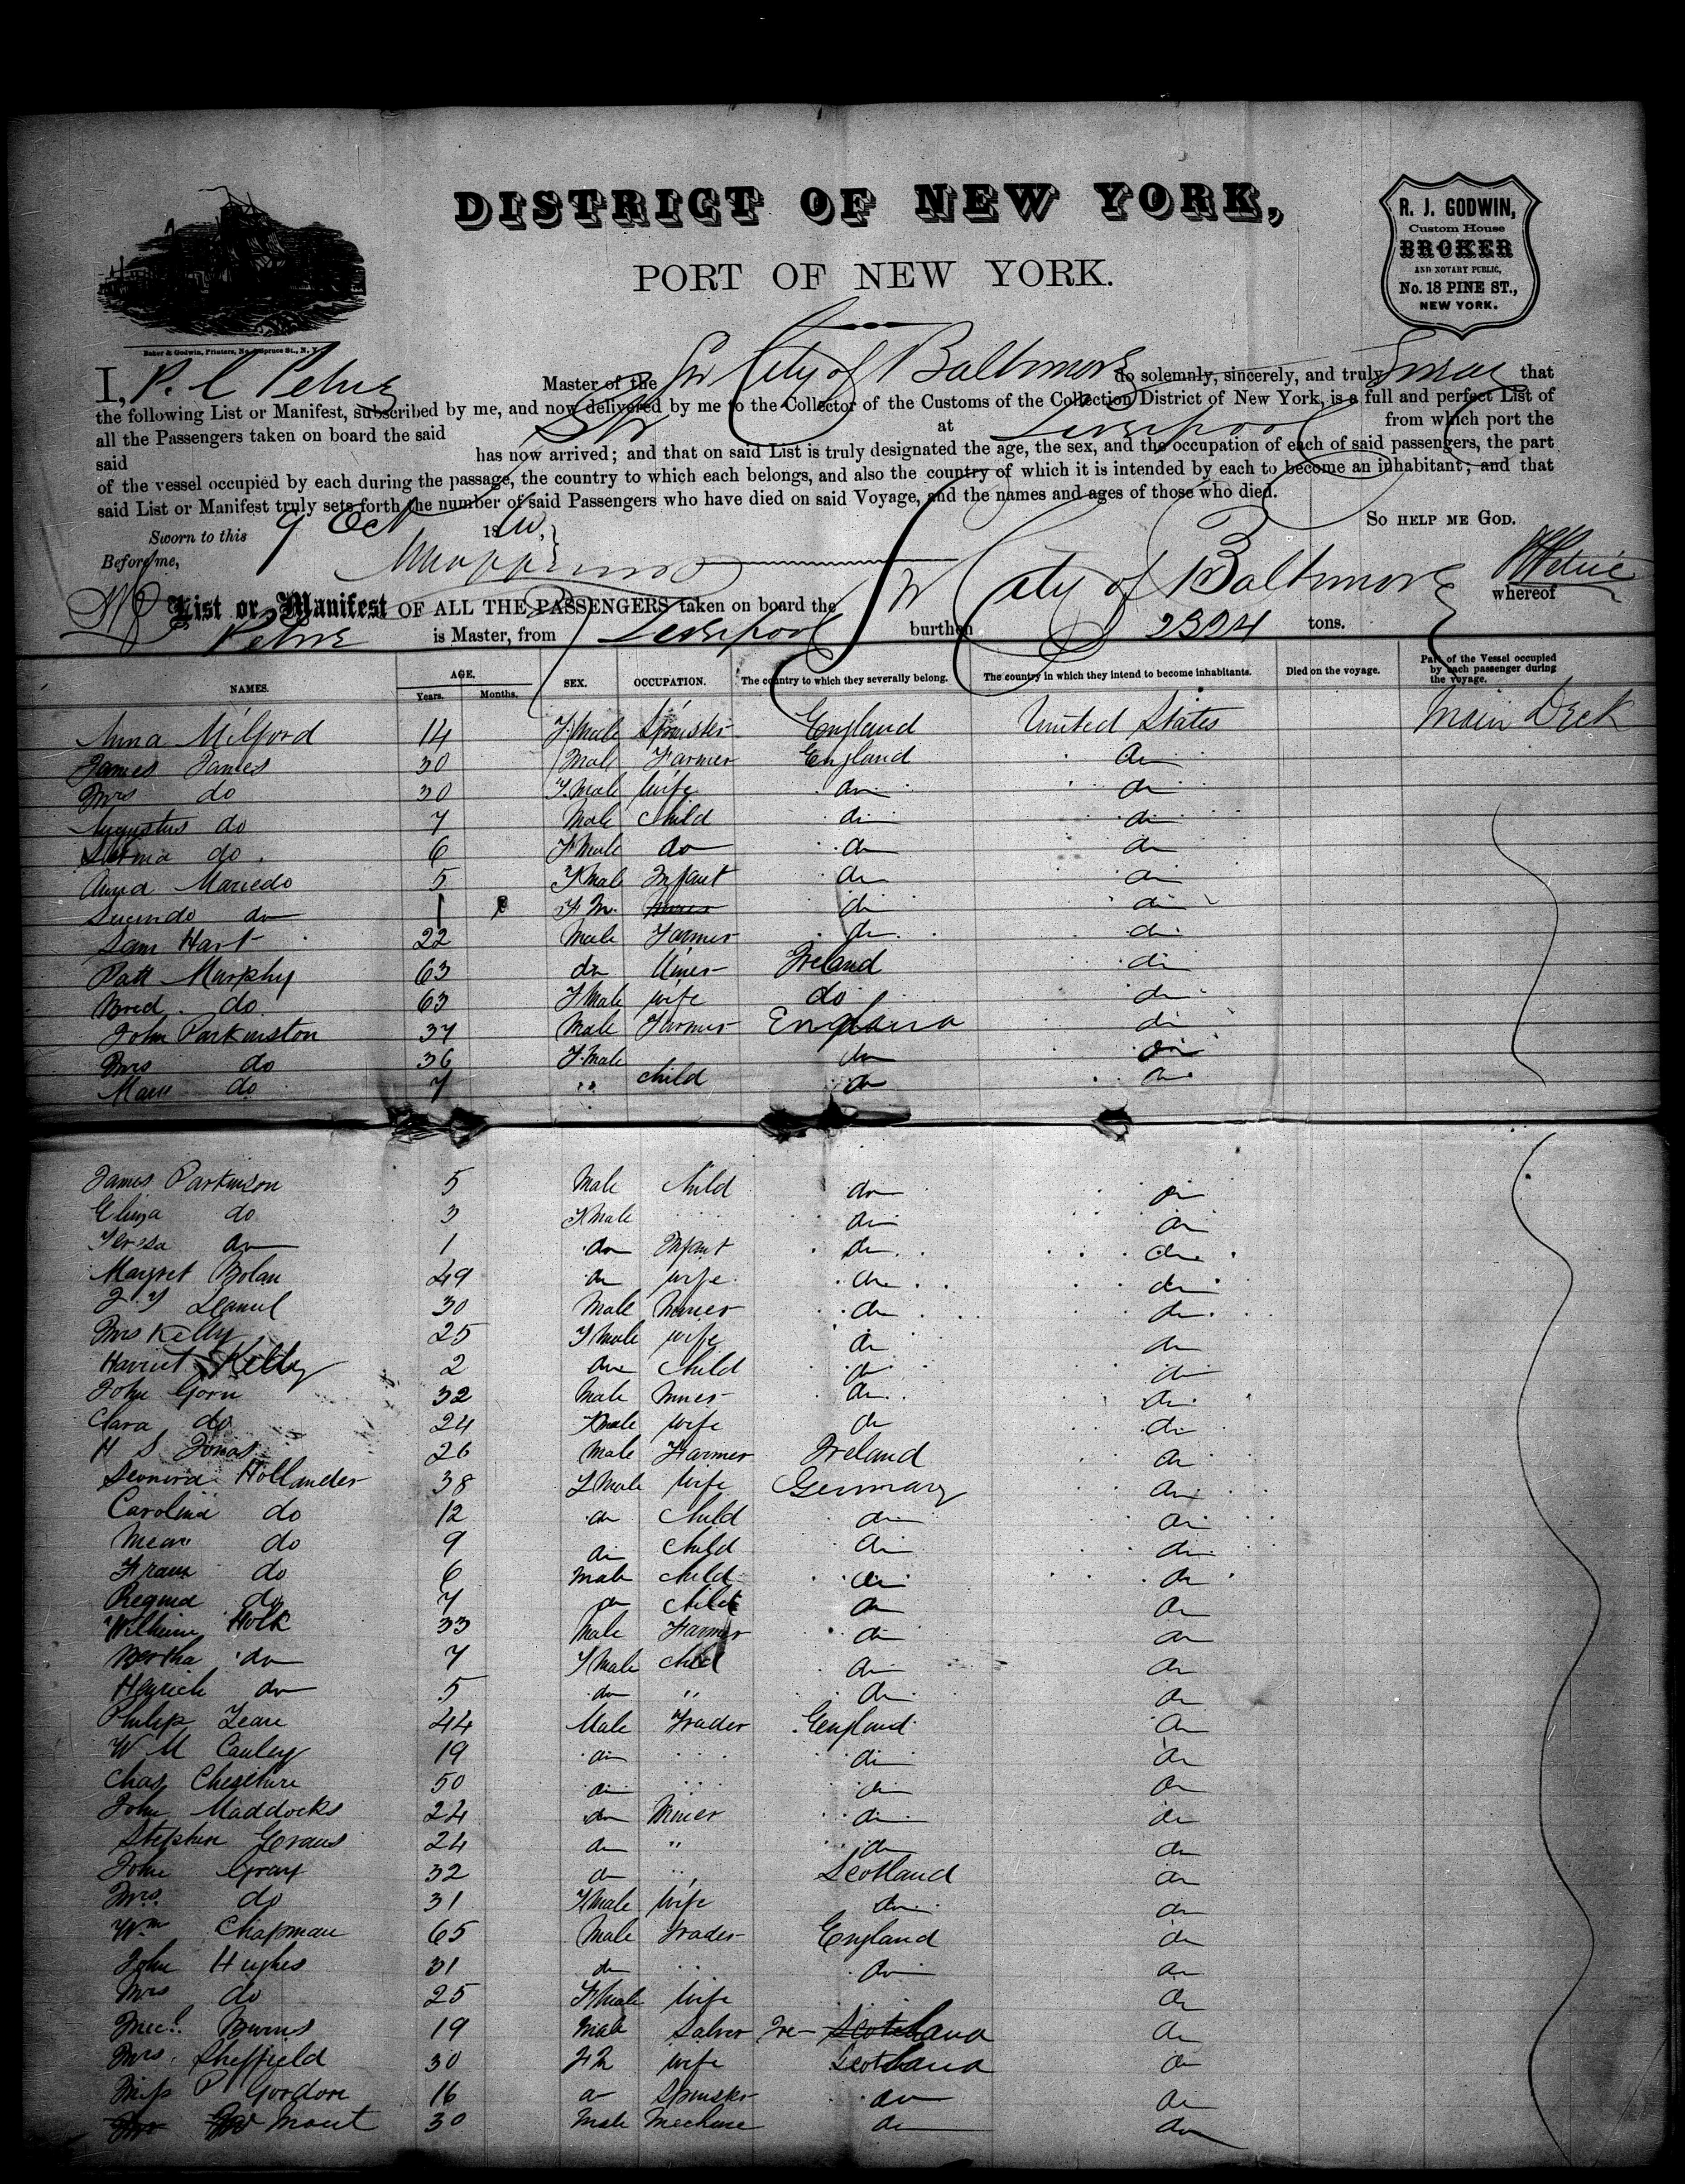 DISTRICT OF NEW YORK,
PORT OF NEW YORK.
R. J. GODWIN,
Custom House
BROKER
AND NOTARY PUBLIC,
No. 18 PINE ST.,
NEW YORK.
Baker & Godwin, Printers, No. Spruce St., N. Y.
I, P. C Petrie Master of the Str City of Baltimore do solemnly, sincerely, and truly swear that
the following List or Manifest, subscribed by me, and now delivered by me to the Collector of the Customs of the Collection District of New York, is a full and perfect List of
all the Passengers taken on board the said Str at Liverpool from which port the
said has now arrived; and that on said List is truly designated the age, the sex, and the occupation of each of said passengers, the part
of the vessel occupied by each during the passage, the country to which each belongs, and also the country of which it is intended by each to become an inhabitant; and that
said List or Manifest truly sets forth the number of said Passengers who have died on said Voyage, and the names and ages of those who died.
SO HELP ME GOD.
Sworn to this 9 Oct 18
Before me,
Petrie
List or Manifest OF ALL THE PASSENGERS taken on board the Str City of Baltimore whereof
Petrie is Master, from Liverpool burthen 2324 tons.
NAMES. AGE. Years. Months. SEX. OCCUPATION. The country to which they severally belong. The country in which they intend to become inhabitants. Died on the voyage. Part of the Vessel occupied by each passenger during the voyage.
Anna Milford 14 F.Male Spinster England United States Main Deck
James James 30 Male Farmer England do
Mrs do 30 F.Male Wife do do
Augustus do 7 Male Child do do
do 6 F Male do do do
Anna Mariedo 5 F Male Infant do do
do 1 F M. do do
Sam Hart 22 Male Farmer do do
Patt Murphy 63 do Miner Ireland do
Bred. do 63 F Male wife do do
John Parkinston 37 Male Farmer England do
Mrs do 36 F.Male do do
Mary do 7 " child do do
James Parkinson 5 Male Child do do
Eliza do 3 F Male do do
Teresa do 1 do Infant do do
Margret Bolan 49 do wife do do
30 Male Miner do do
Mrs Kelly 25 F Male wife do do
Harriet Kelly 2 do Child do do
John Gorn 32 Male Miner do do
Clara do 24 F Male wife do do
H S Jonas 26 Male Farmer Ireland do
Hollander 38 F Male Wife Germany do
Carolina do 12 do Child do do
do 9 do Child do do
Franz do 6 Male Child do do
Regina do 7 do Child do do
Wilhelm Holk 33 Male Farmer do do
Bertha do 7 F Male Child do do
Henrich do 5 do " do do
Philip 44 Male Trader England do
W M Cauley 19 do do do
Chas Cheshire 50 do do do
John Maddocks 24 do Miner do do
Stephen Evans 24 do " do do
John Gray 32 do " Scotland do
Mrs. do 31 F Male Wife do do
Wm Chapman 65 Male Trader England do
John Hughes 31 do do do
Mrs do 25 F Male Wife do
Micl. Burns 19 Male Labrer Ire- Scotland do
Mrs. Sheffield 30 F M wife Scotland do
Miss P Gordon 16 do Spinster do do
Mout 30 Male do do